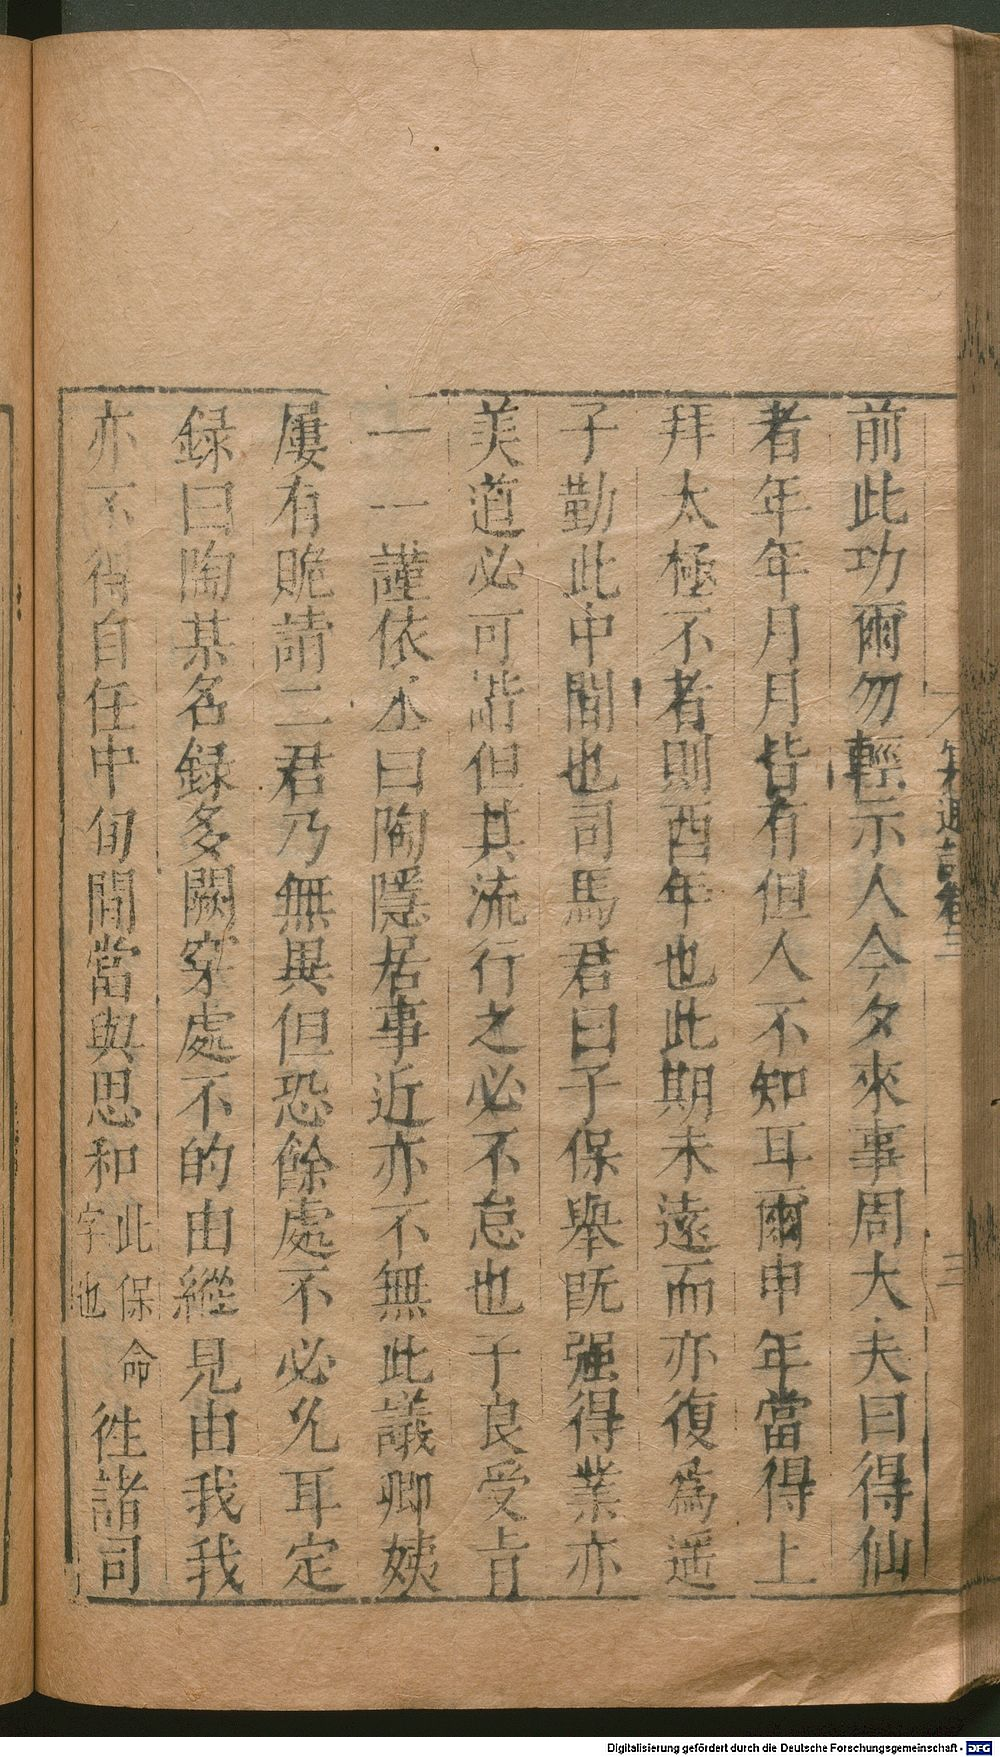 前此功爾勿輕示人今夕來事周大夫曰得仙
者年年月月皆有但人不知耳爾申年當得上
拜太極不者則酉年也此期未遠而亦復爲遥
子勤此中間也司馬君曰子保舉既强得業亦
美道必可諧但其流行之必不怠也子良受旨
一一謹依丞曰陶隱居事近亦不無此議卿姨
屢有跪請二君乃無異但恐餘處不必允耳定
録曰陶某名録多闕穿處不的由縱見由我我
亦不得自任中旬間當與思和此保命字也徃諸司
周氏冥通記卷三
三
Digitalisierung gefördert durch die Deutsche Forschungsgemeinschaft - DFG